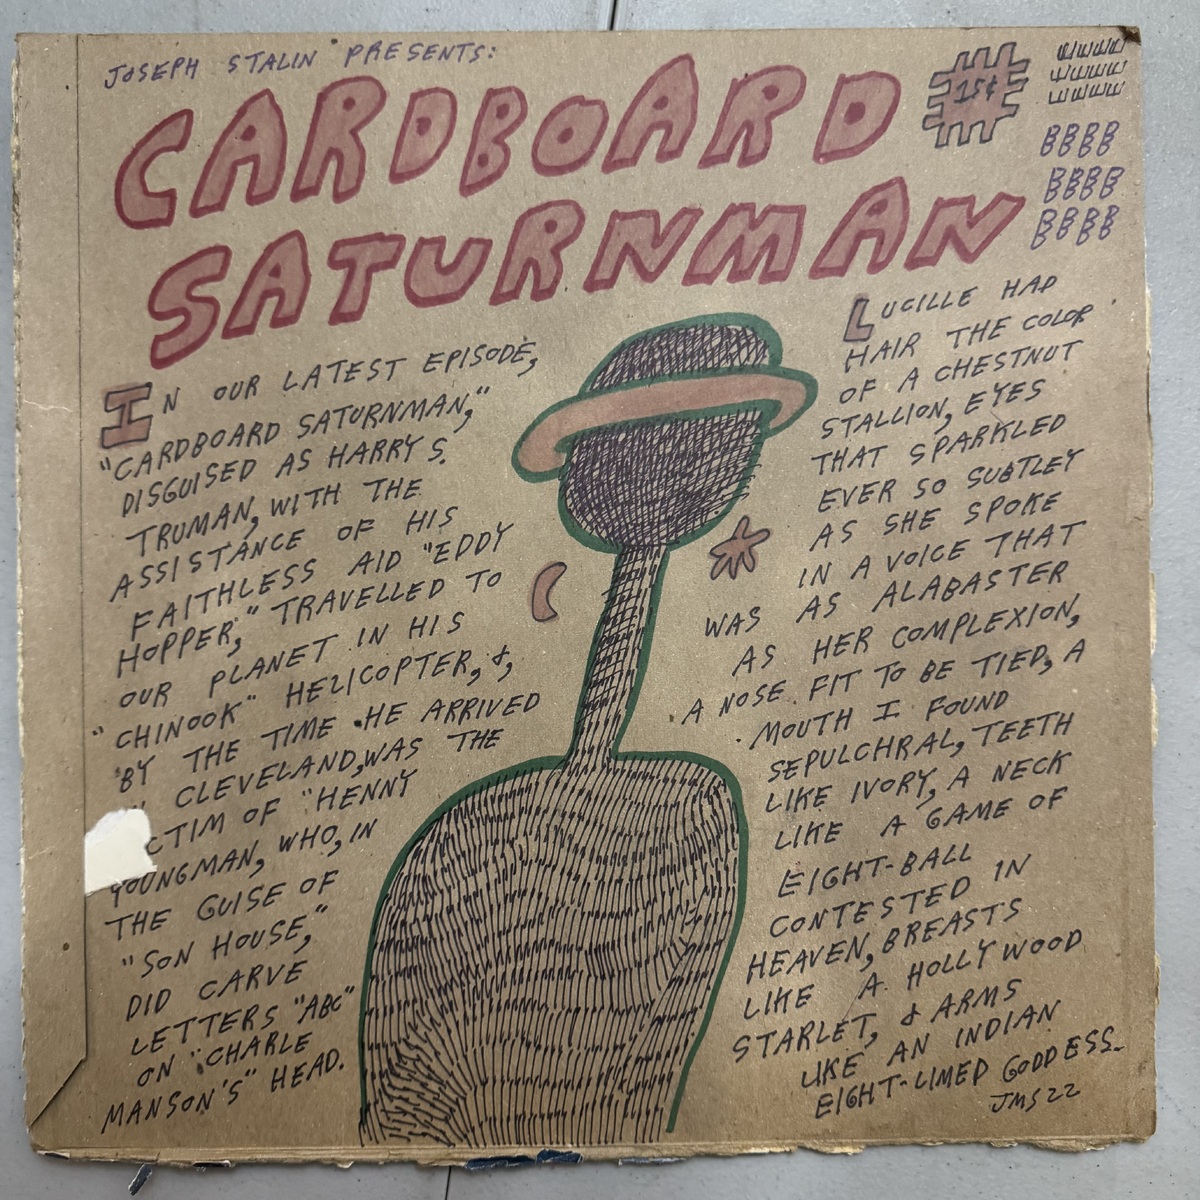 JOSEPH STALIN PRESENTS:
CARDBOARD
SATURNMAN
15¢
EEEEE
EEEEE
EEEEE
BBBB
BBBB
BBBB
BBBB
BBBB
IN OUR LATEST EPISODE,
"CARDBOARD SATURNMAN,"
DISGUISED AS HARRY S.
TRUMAN, WITH THE
ASSISTANCE OF HIS
FAITHLESS AID "EDDY
HOPPER," TRAVELLED TO
OUR PLANET IN HIS
"CHINOOK" HELICOPTER, &,
BY THE TIME HE ARRIVED
CLEVELAND, WAS THE
CTIM OF "HENNY
YOUNGMAN, WHO, IN
THE GUISE OF
"SON HOUSE,"
DID CARVE
LETTERS "ABC"
ON "CHARLE
MANSON'S" HEAD.
LUCILLE HAD
HAIR THE COLOR
OF A CHESTNUT
STALLION, EYES
THAT SPARKLED
EVER SO SUBTLEY
AS SHE SPOKE
IN A VOICE THAT
WAS AS ALABASTER
AS HER COMPLEXION,
A NOSE FIT TO BE TIED, A
MOUTH I FOUND
SEPULCHRAL, TEETH
LIKE IVORY, A NECK
LIKE A GAME OF
EIGHT-BALL
CONTESTED IN
HEAVEN, BREASTS
LIKE A HOLLYWOOD
STARLET, & ARMS
LIKE AN INDIAN
EIGHT-LIMED GODDESS.
JMS22